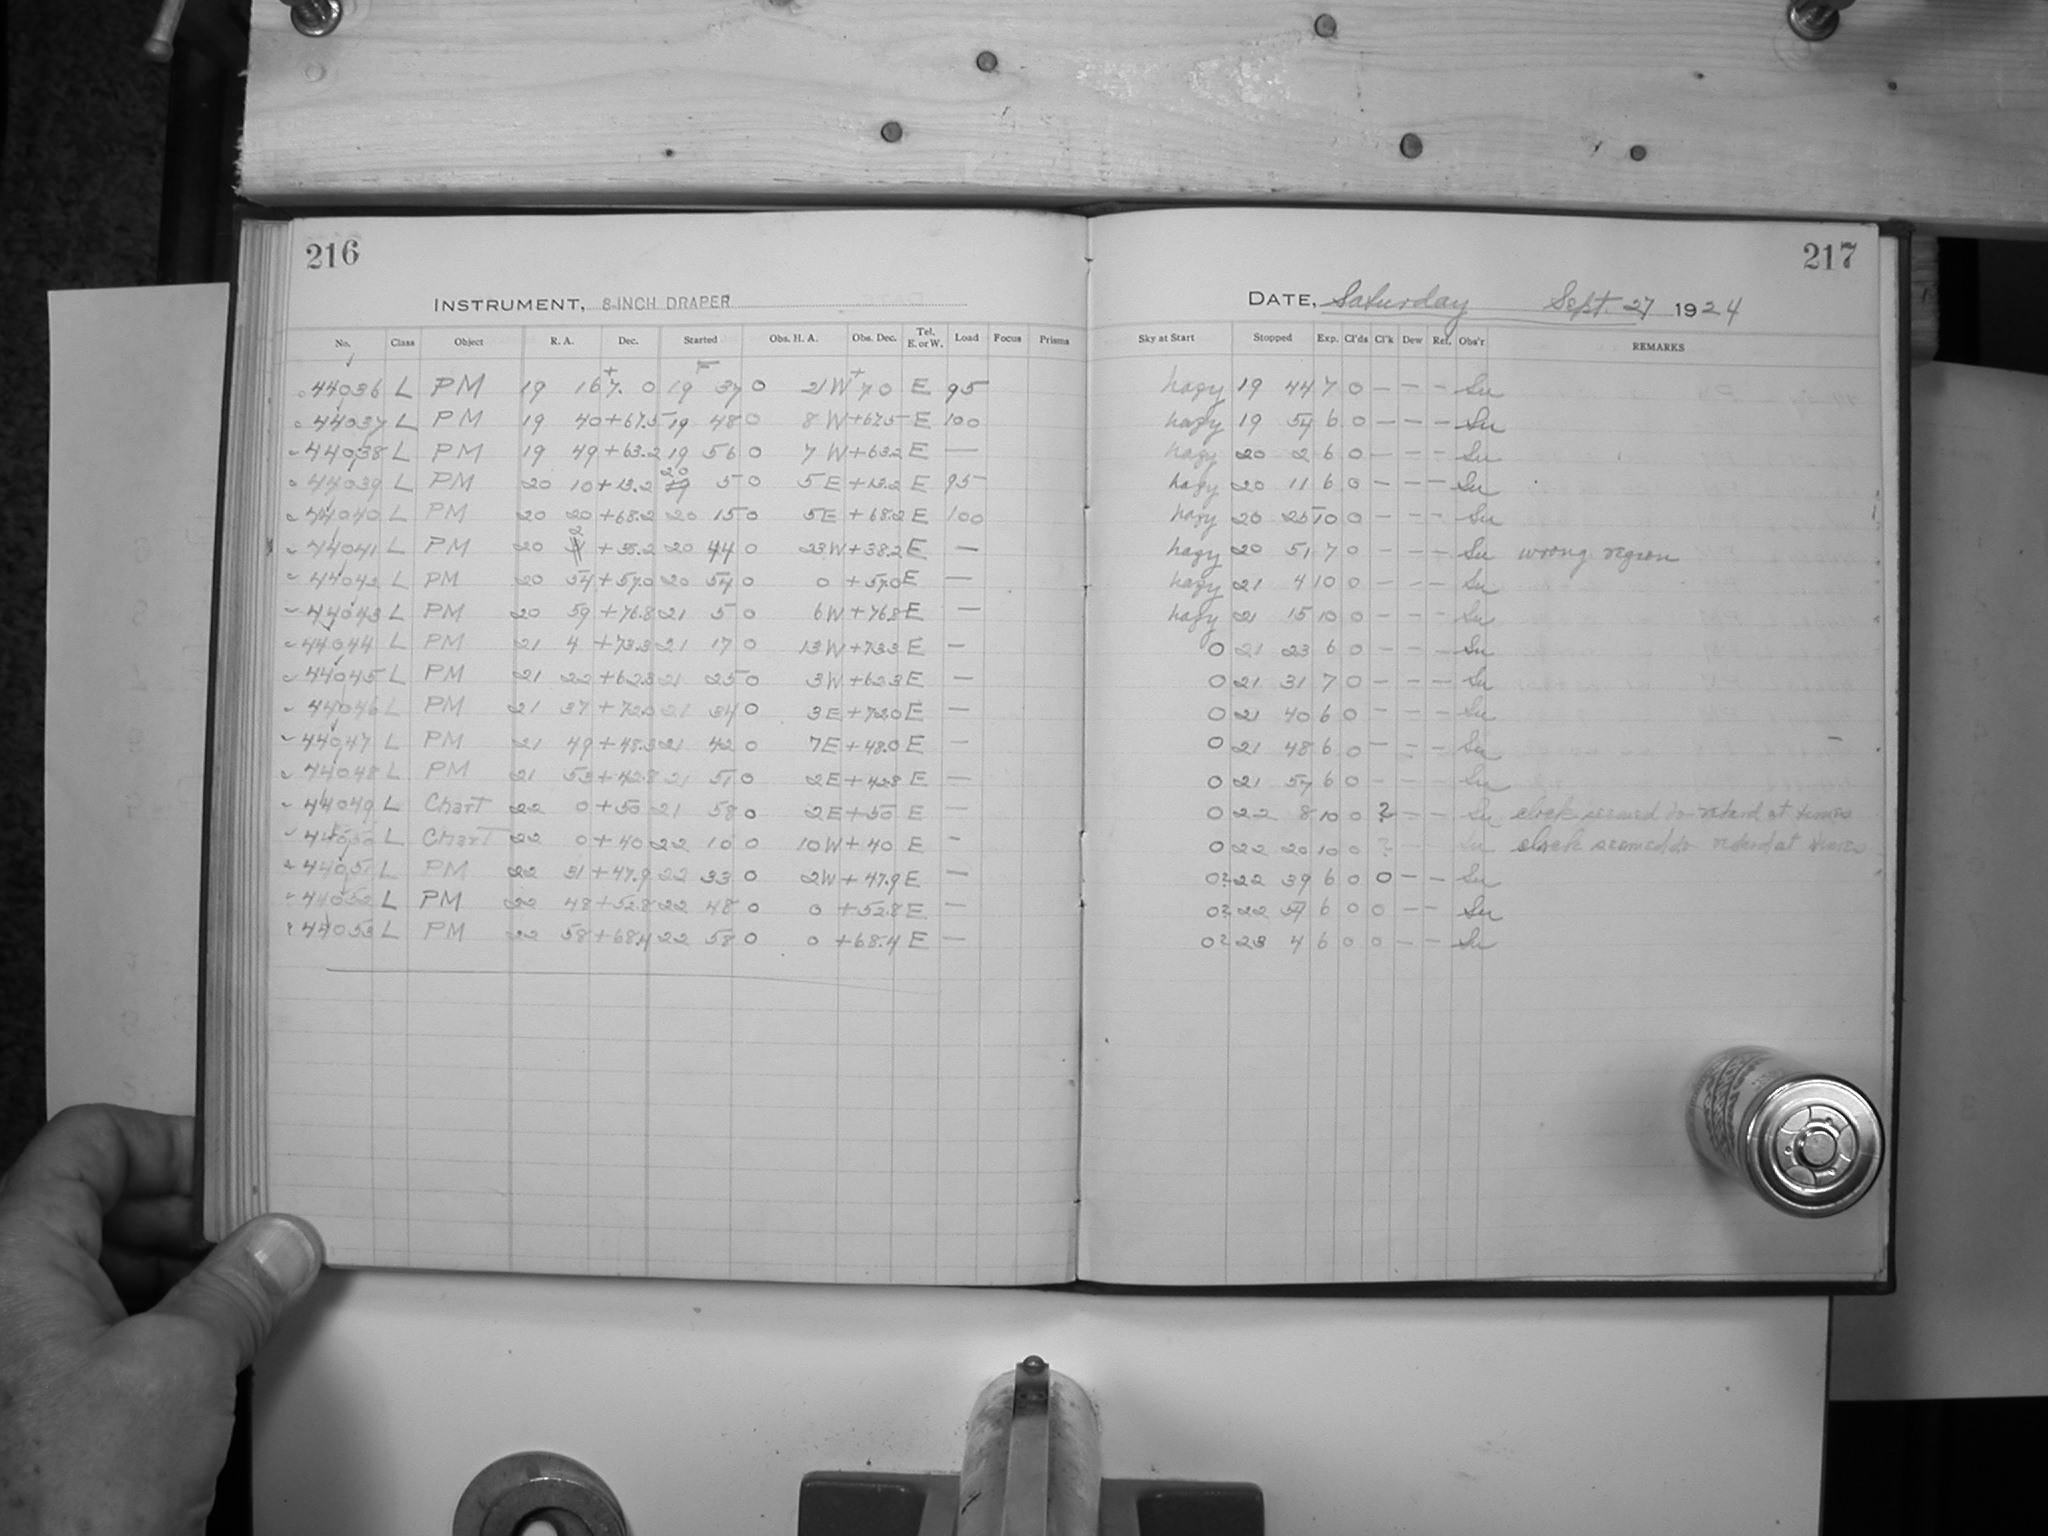 216
INSTRUMENT, 8-INCH DRAPER
No. Class Object R. A. Dec. Started Obs. H. A. Obs. Dec. Tel. E. or W. Load Focus Prisms
44036 L PM 19 16 +7.0 19 37 0 21 W +7 0 E 95
44037 L PM 19 40 +67.5 19 48 0 8 W +67.5 E 100
44038 L PM 19 49 +63.2 19 56 0 7 W +63.2 E —
44039 L PM 20 10 +13.2 20 5 0 5 E +13.2 E 95
44040 L PM 20 20 +68.2 20 15 0 5 E +68.2 E 100
44041 L PM 20 20 44 0 23 W +38.2 E —
44042 L PM 20 54 +57.0 20 54 0 0 +57.0 E —
44043 L PM 20 59 +76.8 21 5 0 6 W +76.8 E —
44044 L PM 21 4 +73.3 21 17 0 13 W +73.3 E —
44045 L PM 21 22 +62.3 21 25 0 3 W +62.3 E —
44046 L PM 21 37 +72.0 21 34 0 3 E +72.0 E —
44047 L PM 21 49 21 42 0 7 E +48.0 E —
44048 L PM 21 53 +42.8 21 51 0 2 E +42.8 E —
44049 L Chart 22 0 +50 21 58 0 2 E +50 E —
44050 L Chart 22 0 +40 22 10 0 10 W +40 E —
44051 L PM 22 31 +47.9 22 33 0 2 W +47.9 E —
44052 L PM 22 48 +52.8 22 48 0 0 +52.8 E —
44053 L PM 22 58 +68.4 22 58 0 0 +68.4 E —
217
DATE, Saturday Sept. 27 1924
Sky at Start Stopped Exp. Cl'ds Cl'k Dew Ref. Obs'r REMARKS
hazy 19 44 7 0 — — — Su
hazy 19 54 6 0 — — — Su
hazy 20 2 6 0 — — — Su
hazy 20 11 6 0 — — — Su
hazy 20 25 10 0 — — — Su
hazy 20 51 7 0 — — — Su wrong region
hazy 21 4 10 0 — — — Su
hazy 21 15 10 0 — — — Su
0 21 23 6 0 — — — Su
0 21 31 7 0 — — — Su
0 21 40 6 0 — — — Su
0 21 48 6 0 — — — Su
0 21 57 6 0 — — — Su
0 22 8 10 0 ? — — Su clock seemed to retard at times
0 22 20 10 0 ? — — Su clock seemed to retard at times
0? 22 39 6 0 0 — — Su
0? 22 54 6 0 0 — — Su
0? 23 4 6 0 0 — — Su